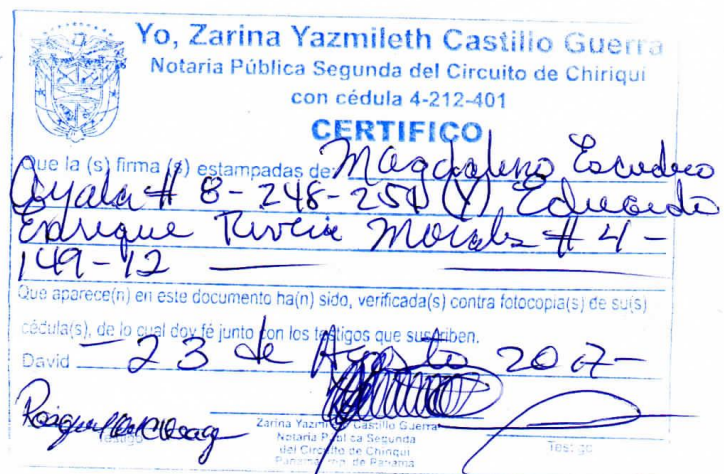 Yo, Zarina Yazmileth Castillo Guerra
Notaria Pública Segunda del Circuito de Chiriquí
con cédula 4-212-401
CERTIFICO
Que la (s) firma (s) estampadas de: Magdaleno Escudero
Ayala # 8-248-254 (Y) Eduardo
Enrique Rivera Morales # 4-
149-12
Que aparece(n) en este documento ha(n) sido, verificada(s) contra fotocopia(s) de su(s)
cédula(s), de lo cual doy fé junto con los testigos que suscriben.
David - 23 de Agosto 2007-
Zarina Yazmileth Castillo Guerra
Testigo
Notaria Pública Segunda
Testigo
del Circuito de Chiriquí